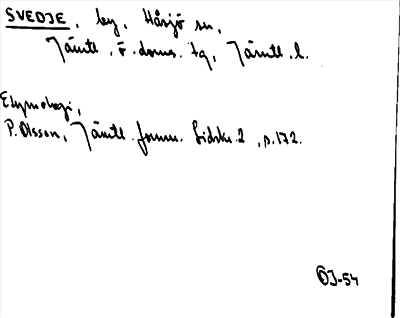 SVEDJE, by, Håsjö sn,
Jämtl. ö. doms. tg, Jämtl. l.
Etymologi,
P. Olsson, Jämtl. fornm. tidskr. 2, s. 172.
ÖJ-54